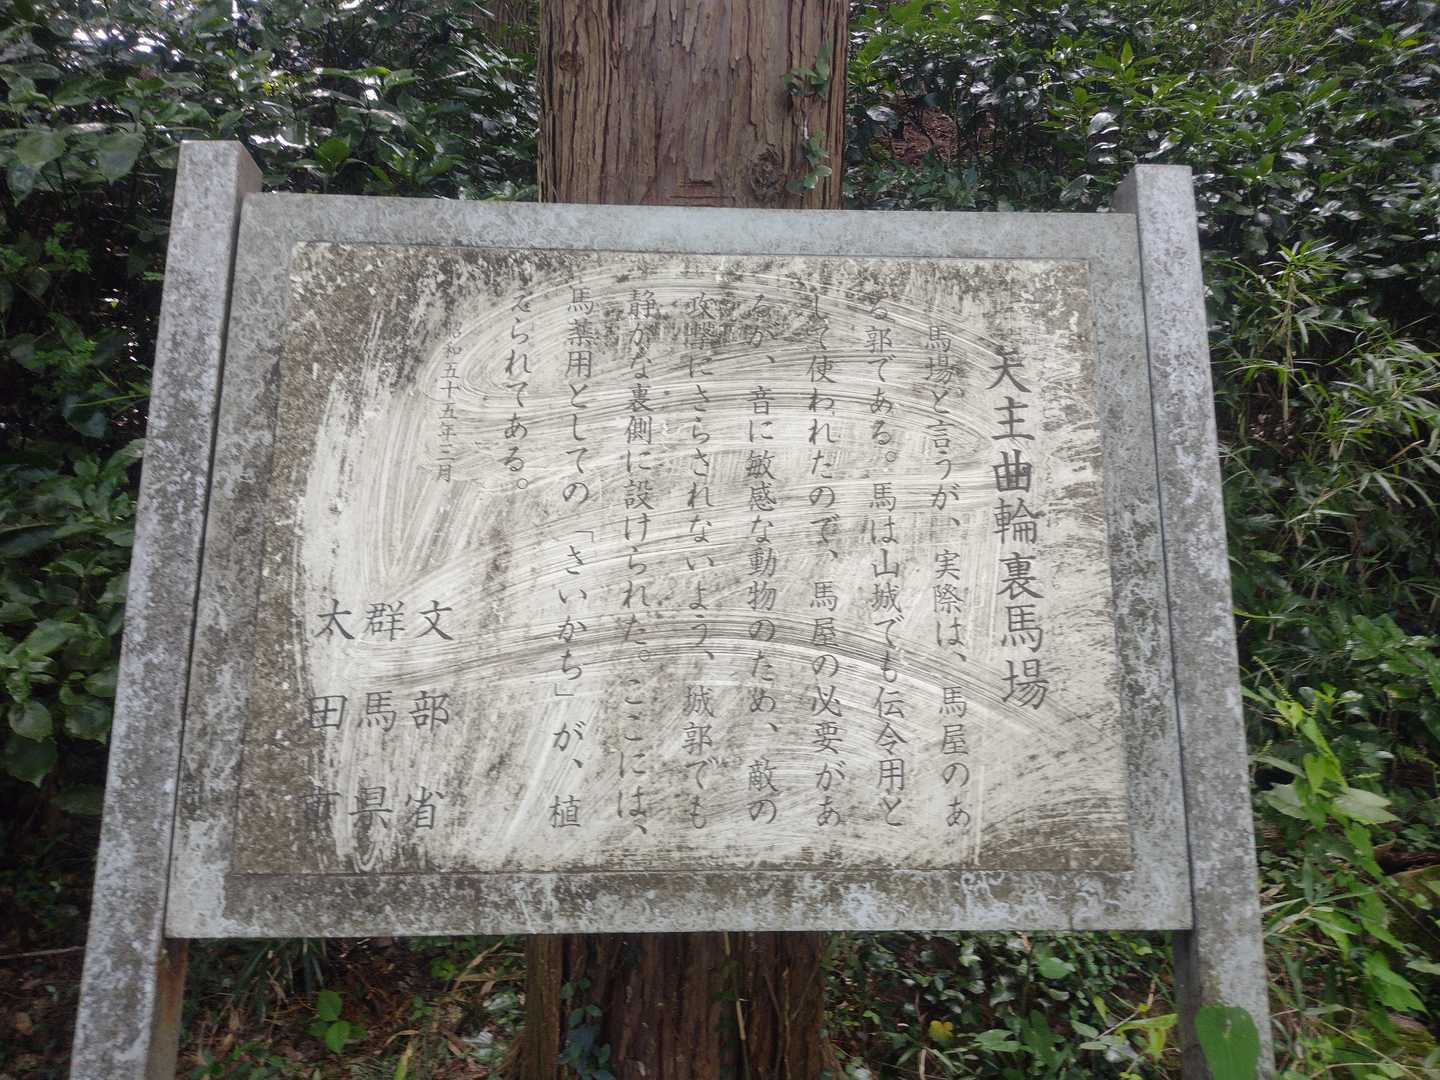 天主曲輪裏馬場
馬場と言うが、実際は、馬屋のあ
る郭である。馬は山城でも伝令用と
して使われたので、馬屋の必要があ
るが、音に敏感な動物のため、敵の
攻撃にさらされないよう、城郭でも
静かな裏側に設けられた。ここには、
馬薬用としての「きいかち」が、植
えられてある。
昭和五十五年三月
文部省
群馬県
太田市